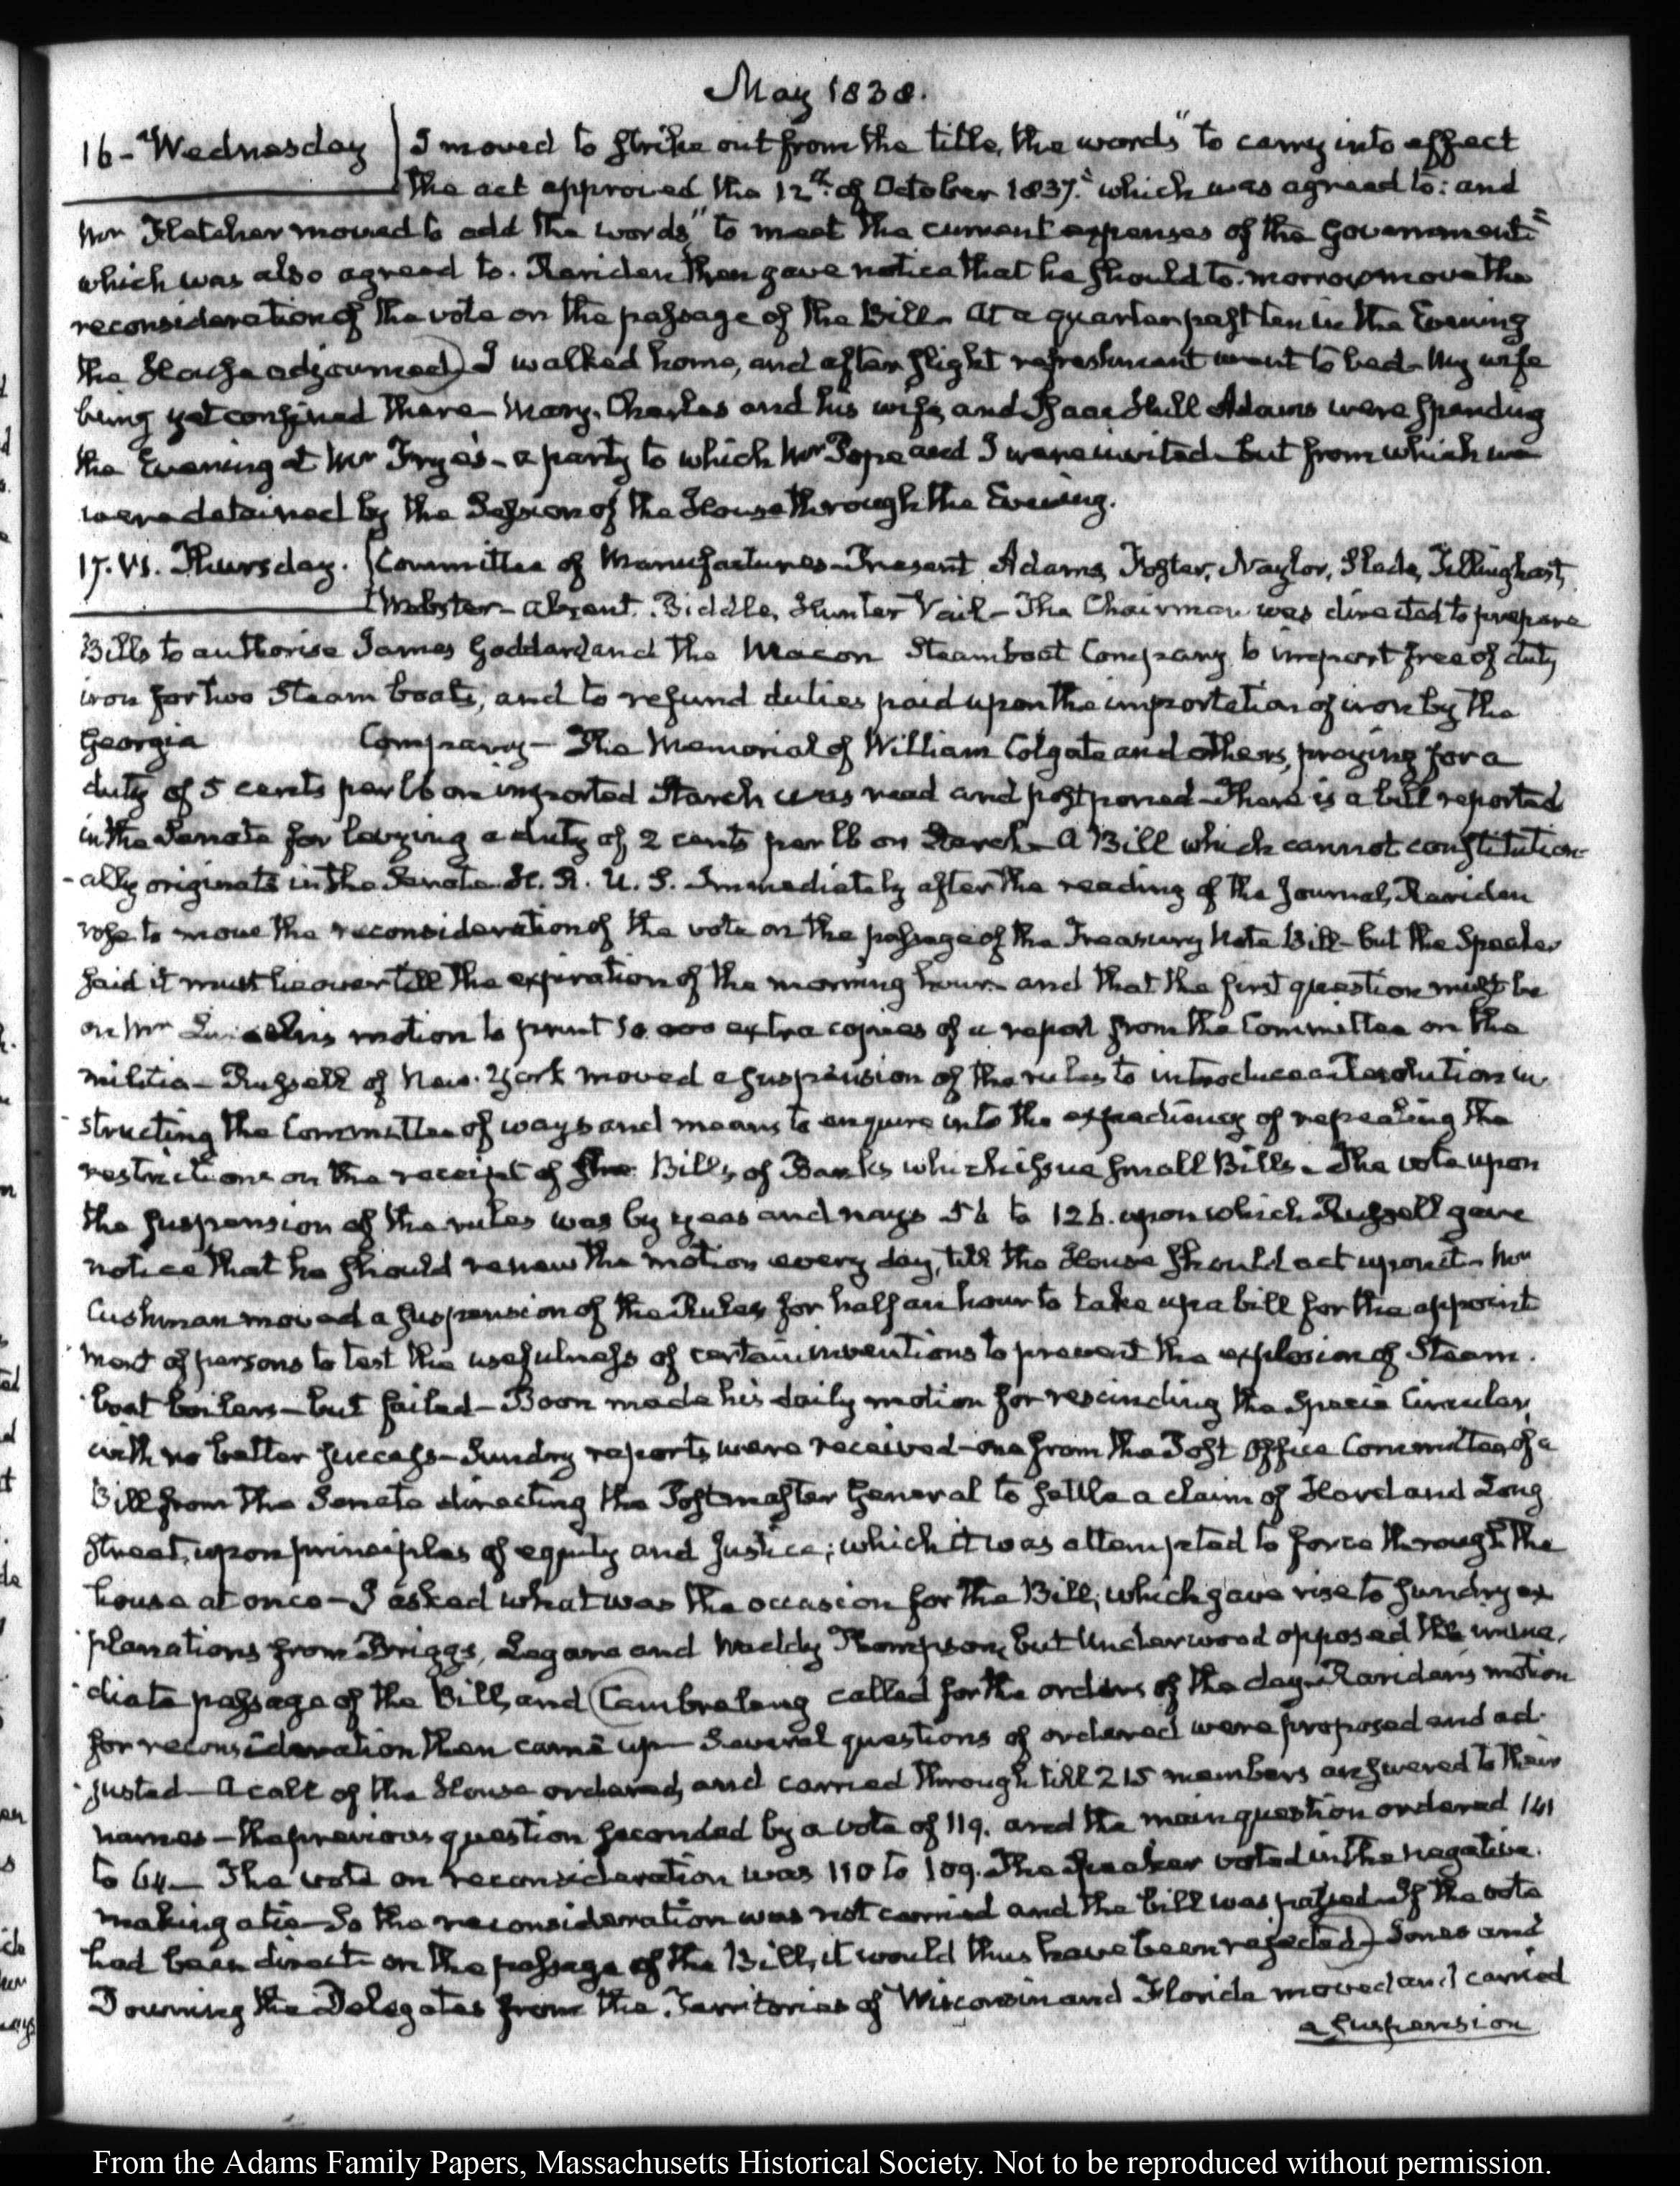 May 1838.
16 - Wednesday I moved to strike out from the title, the words "to carry into effect
the act approved the 12th of October 1837." which was agreed to: and
Mr Fletcher moved to add the words, "to meet the current expenses of the Government"
which was also agreed to. Rariden then gave notice that he should to-morrow move the
reconsideration of the vote on the passage of the Bill. At a quarter past ten in the Evening
the House adjourned) I walked home, and after slight refreshment went to bed - My wife
being yet confined there - Mary, Charles and his wife, and Isaac Hull Adams were spending
the Evening at Mr Frye's - a party to which Mr Pope and I were invited - but from which we
were detained by the Session of the House through the Evening.
17. VI. Thursday. Committee of Manufactures - Present Adams, Foster, Naylor, Slade, Tillinghast,
Webster - absent. Biddle, Hunter Vail - The Chairman was directed to prepare
Bills to authorise James Goddard and the Macon Steamboat Company to import free of duty
iron for two Steam boats, and to refund duties paid upon the importation of iron by the
Georgia Company - The Memorial of William Colgate and others, praying for a
duty of 5 cents per lb on imported Starch was read and postponed - There is a bill reported
in the Senate for levying a duty of 2 cents per lb on Starch - A Bill which cannot constitution-
-ally originate in the Senate. H. R. U. S. Immediately after the reading of the Journal, Rariden
rose to move the reconsideration of the vote on the passage of the Treasury Note Bill - but the Speaker
said it must lie over till the expiration of the morning hour and that the first question must be
on Mr motion to print extra copies of a report from the Committee on the
militia - Russell of New-York moved a suspension of the rules to introduce a Resolution in
structing the Committee of ways and means to enquire into the expediency of repealing the
restrictions on the receipt of the Bills of Banks which issue small Bills. The vote upon
the suspension of the rules was by yeas and nays 56 to 126. upon which Russell gave
notice that he should renew the motion every day, till the House should act upon it - Mr
Cushman moved a suspension of the Rules for half an hour to take up a bill for the appoint
ment of persons to test the usefulness of certain inventions to prevent the explosion of Steam.
boat boilers - but failed - Boon made his daily motion for rescinding the Specie Circular,
with no better success - Sundry reports were received - one from the Post Office Committee, of a
Bill from the Senate directing the Postmaster General to settle a claim of and Long
street, upon principles of equity and justice; which it was attempted to force through the
house at once - I asked what was the occasion for the Bill; which gave rise to sundry ex
planations from Briggs, Legare and Waddy Thompson, but Underwood opposed the imme-
diate passage of the Bill, and (Cambreleng called for the orders of the day - Rariden's motion
for reconsideration then came up - Several questions of ordered were proposed and ad-
justed - A call of the House ordered, and carried through till 215 members answered to their
names - the previous question seconded by a vote of 119. and the main question ordered 141
to 64 - The vote on reconsideration was 110 to 109. The Speaker voted in the negative.
making a tie - So the reconsideration was not carried and the bill was passed - If the vote
had been direct on the passage of the Bill, it would thus have been rejected) - Jones and
Downing the Delegates from the Territories of Wisconsin and Florida moved and carried
a suspension
From the Adams Family Papers, Massachusetts Historical Society. Not to be reproduced without permission.